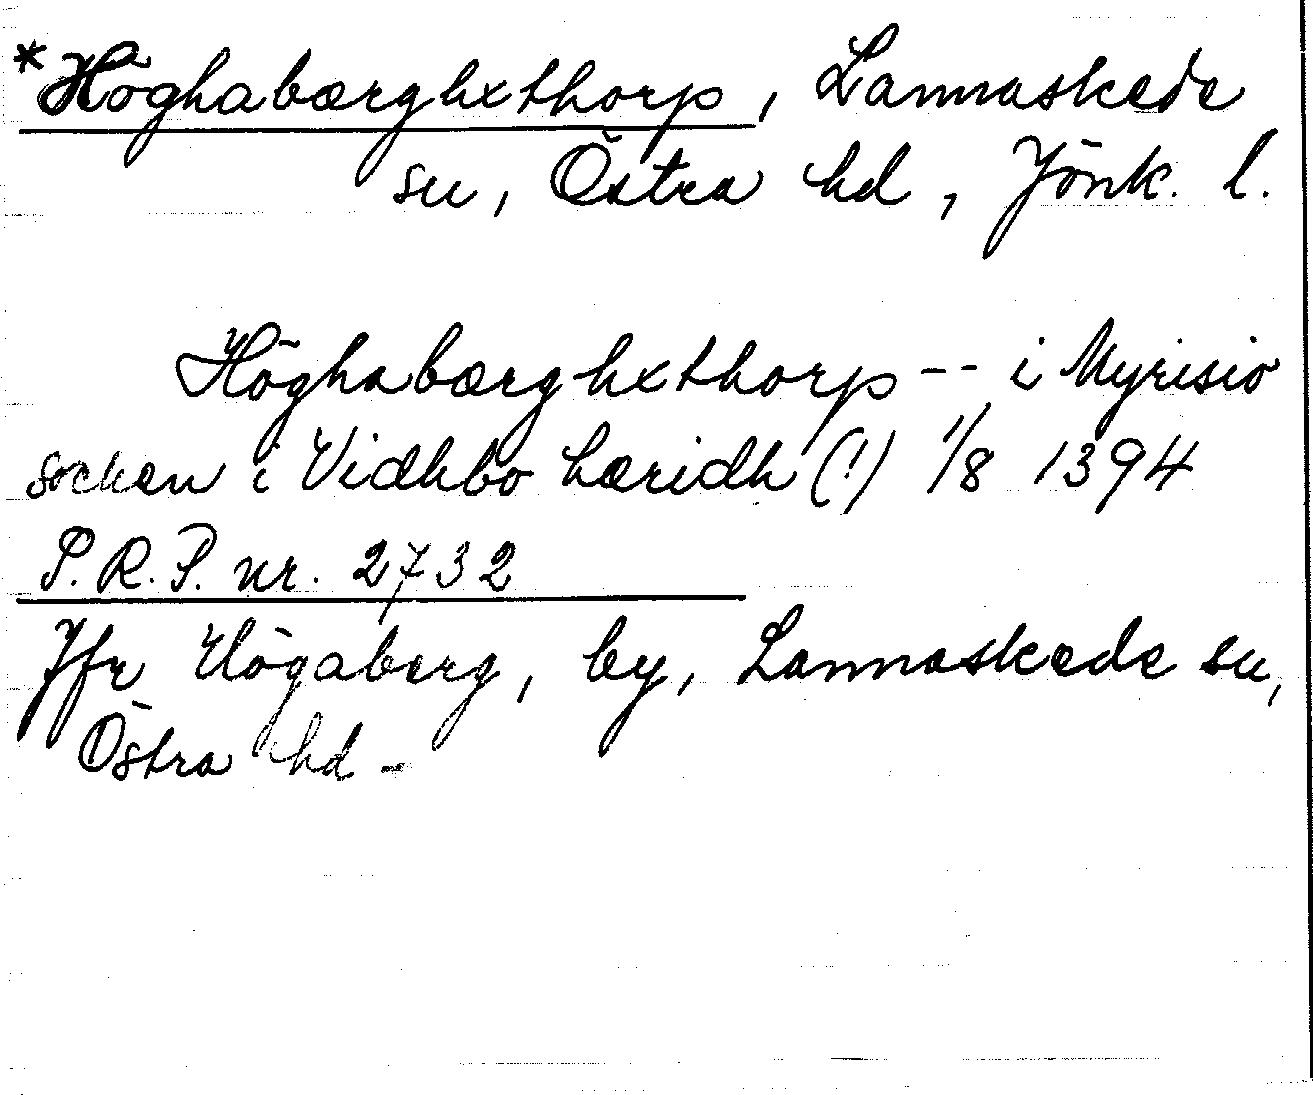 *Höghabærghxthorp, Lannaskede
sn, Östra hd, Jönk. l.
Höghabærghxthorp -- i Myrisio
socken i Vidhbo hæridh (!) 1/8 1394
P.R.P. nr. 2732
Jfr Högaberg, by, Lannaskede sn,
Östra hd -